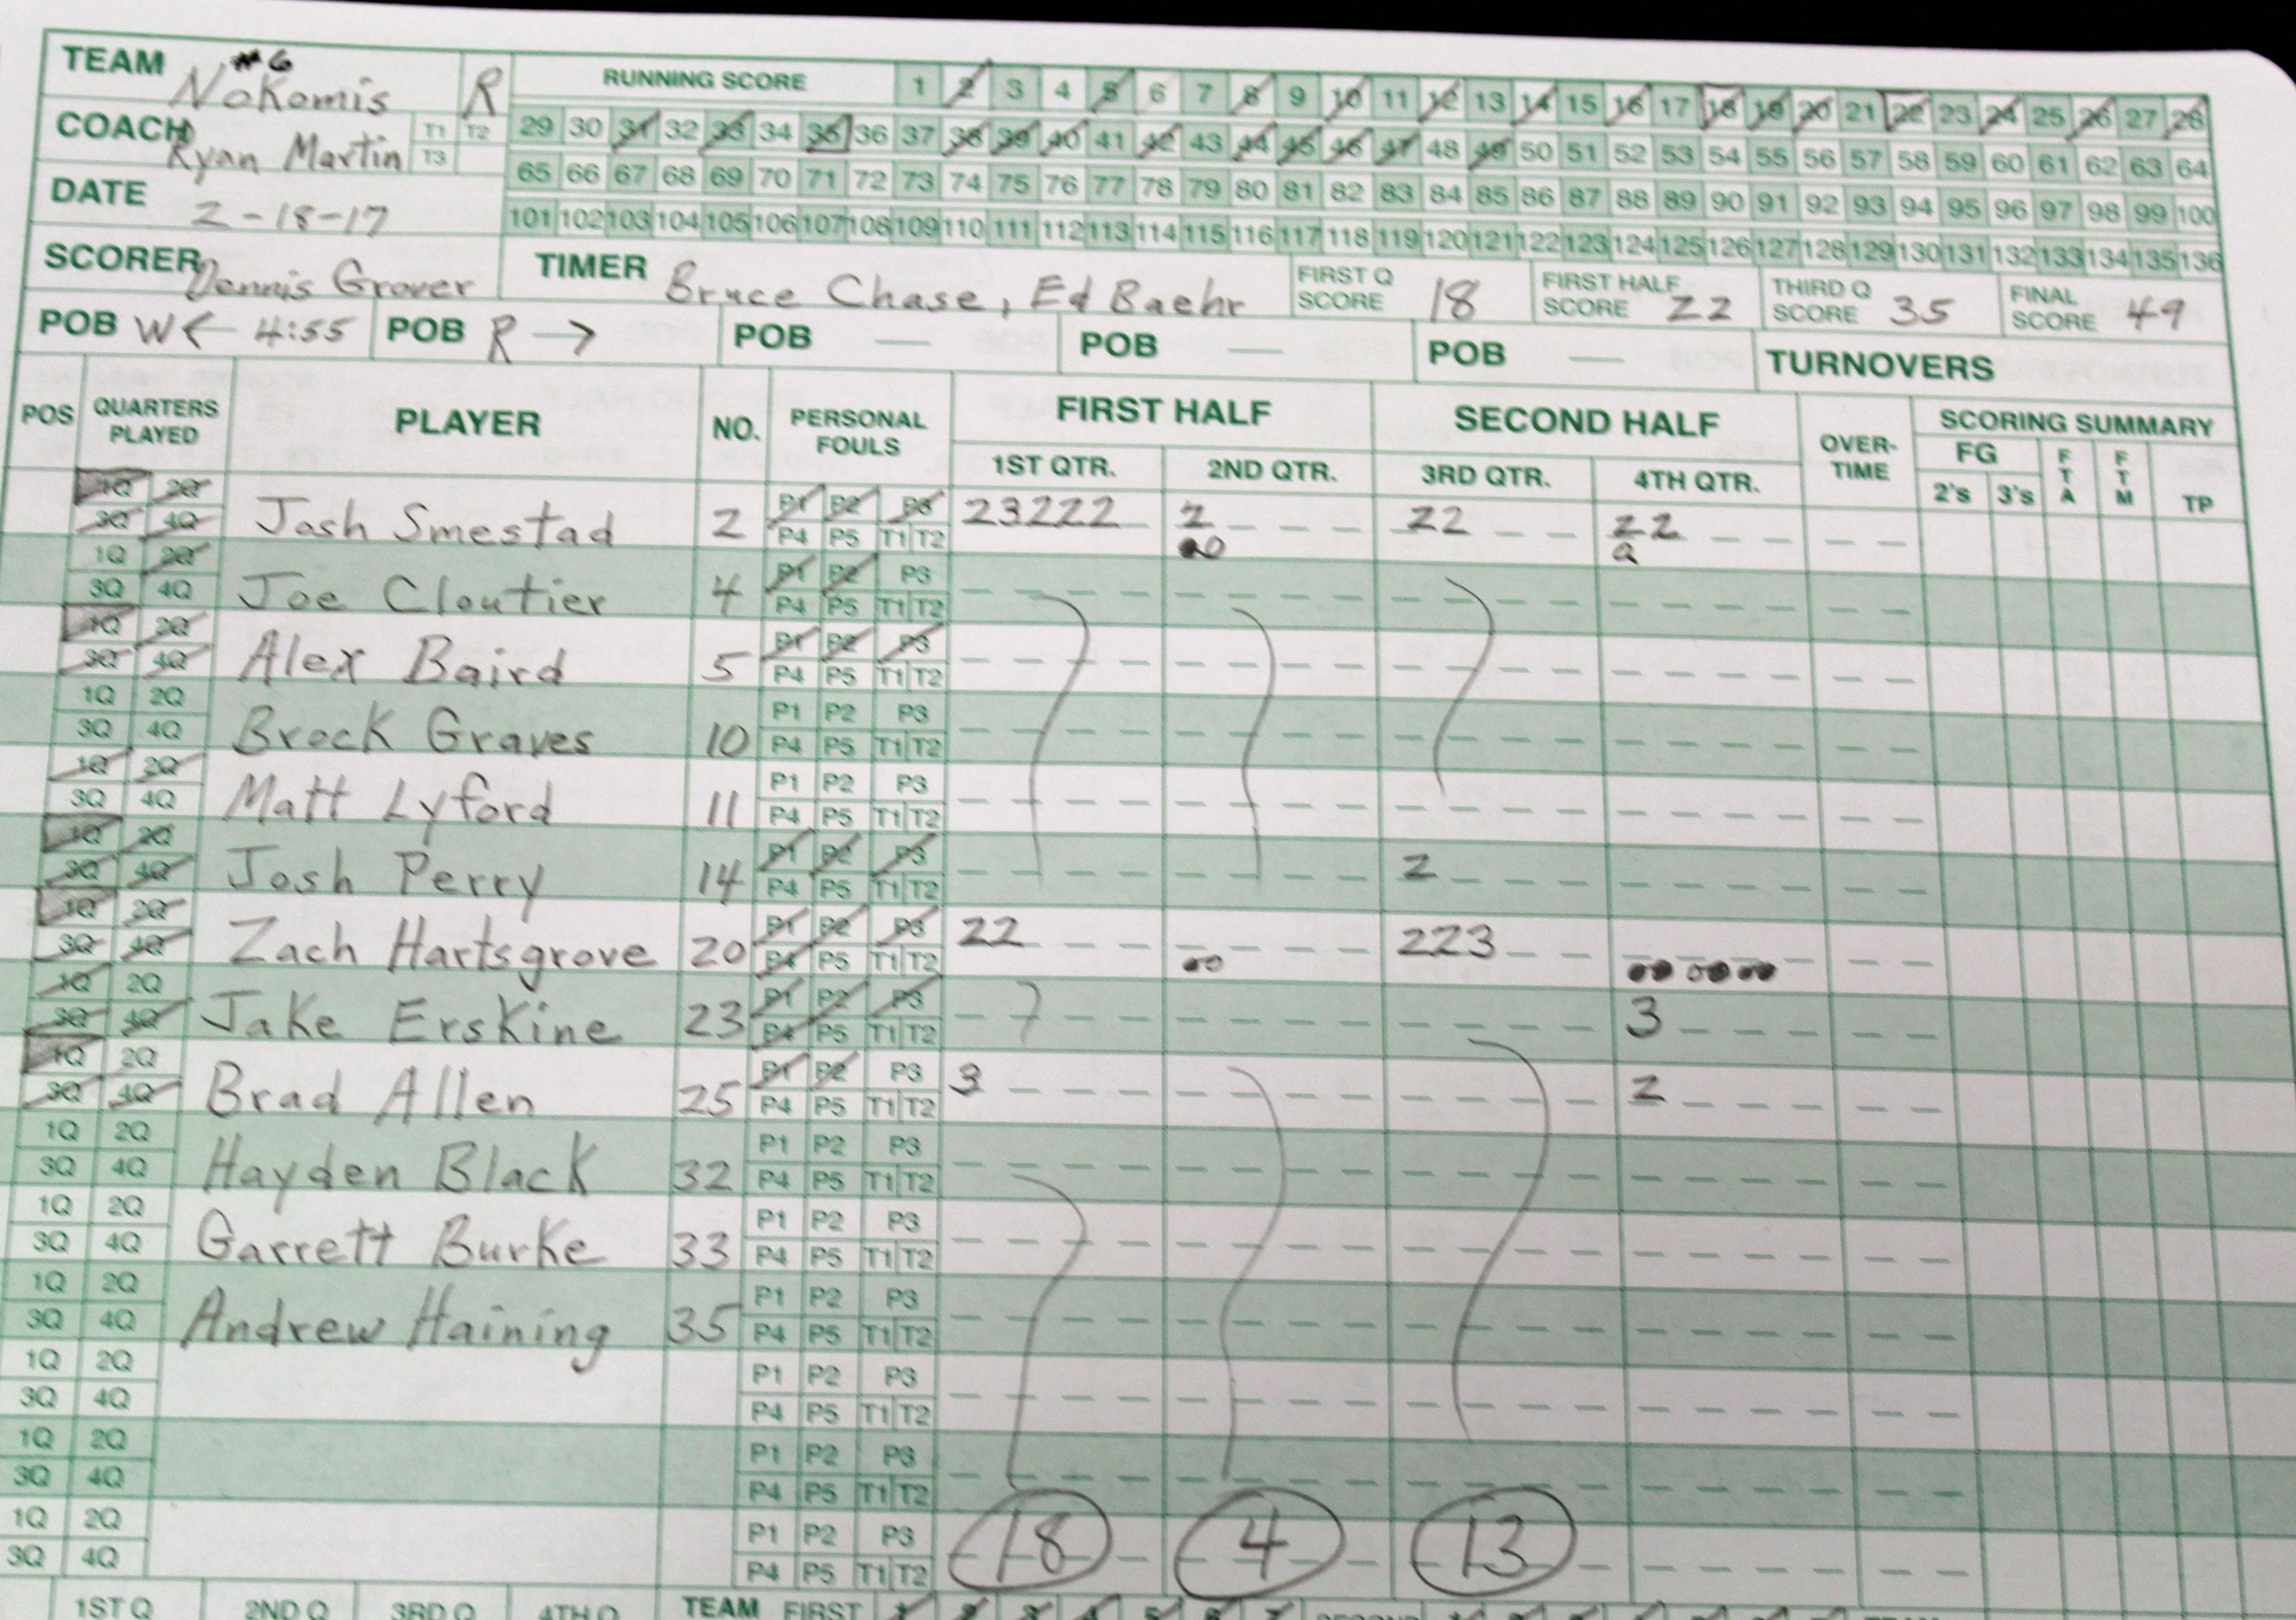 #6
TEAM Nokomis R RUNNING SCORE 1 2 3 4 5 6 7 8 9 10 11 12 13 14 15 16 17 18 19 20 21 22 23 24 25 26 27 28
COACH Ryan Martin T1 T2 T3 29 30 31 32 33 34 35 36 37 38 39 40 41 42 43 44 45 46 47 48 49 50 51 52 53 54 55 56 57 58 59 60 61 62 63 64
65 66 67 68 69 70 71 72 73 74 75 76 77 78 79 80 81 82 83 84 85 86 87 88 89 90 91 92 93 94 95 96 97 98 99 100
DATE 2-18-17 101 102 103 104 105 106 107 108 109 110 111 112 113 114 115 116 117 118 119 120 121 122 123 124 125 126 127 128 129 130 131 132 133 134 135 136
SCORER Dennis Grover TIMER Bruce Chase, Ed Baehr FIRST Q SCORE 18 FIRST HALF SCORE 22 THIRD Q SCORE 35 FINAL SCORE 49
POB W ← 4:55 POB R → POB — POB — POB — TURNOVERS
POS QUARTERS PLAYED PLAYER NO. PERSONAL FOULS FIRST HALF SECOND HALF OVER-TIME SCORING SUMMARY
1ST QTR. 2ND QTR. 3RD QTR. 4TH QTR. FG 2's 3's FTA FTM TP
1Q 2Q P1 P2 P3
3Q 4Q Josh Smestad 2 P4 P5 T1 T2 23222 2 22 22
1Q 2Q P1 P2 P3
3Q 4Q Joe Cloutier 4 P4 P5 T1 T2
1Q 2Q P1 P2 P3
3Q 4Q Alex Baird 5 P4 P5 T1 T2
1Q 2Q P1 P2 P3
3Q 4Q Brock Graves 10 P4 P5 T1 T2
1Q 2Q P1 P2 P3
3Q 4Q Matt Lyford 11 P4 P5 T1 T2
1Q 2Q P1 P2 P3
3Q 4Q Josh Perry 14 P4 P5 T1 T2 2
1Q 2Q P1 P2 P3
3Q 4Q Zach Hartsgrove 20 P4 P5 T1 T2 22 223
1Q 2Q P1 P2 P3
3Q 4Q Jake Erskine 23 P4 P5 T1 T2 3
1Q 2Q P1 P2 P3
3Q 4Q Brad Allen 25 P4 P5 T1 T2 3 2
1Q 2Q P1 P2 P3
3Q 4Q Hayden Black 32 P4 P5 T1 T2
1Q 2Q P1 P2 P3
3Q 4Q Garrett Burke 33 P4 P5 T1 T2
1Q 2Q P1 P2 P3
3Q 4Q Andrew Haining 35 P4 P5 T1 T2
1Q 2Q P1 P2 P3
3Q 4Q P4 P5 T1 T2
1Q 2Q P1 P2 P3
3Q 4Q P4 P5 T1 T2
1Q 2Q P1 P2 P3
3Q 4Q P4 P5 T1 T2 18 4 13
1ST Q 2ND Q 3RD Q 4TH Q TEAM FIRST 1 2 3 4 5 6 7